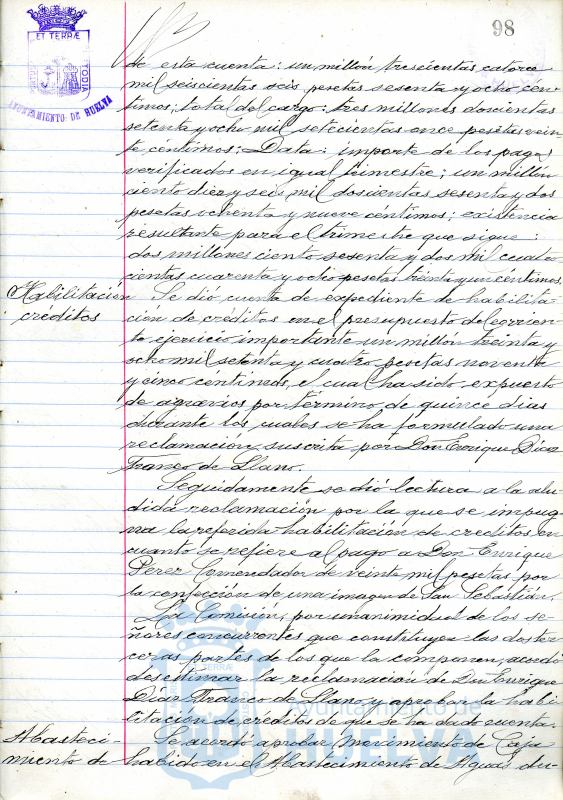 98
ET TERRÆ
AYUNTAMIENTO DE HUELVA
de esta cuenta: un millón trescientas catorce
mil seiscientas seis pesetas sesenta y ocho cén-
timos; total del cargo: tres millones doscientas
setenta y ocho mil setecientas once pesetas vein
te céntimos; Data: importe de los pagos
verificados en igual trimestre; un millón
ciento diez y seis mil doscientas sesenta y dos
pesetas ochenta y nueve centimos; existencia
resultante para el trimestre que sigue:
dos millones ciento sesenta y dos mil cuatro
cientas cuarenta y ocho pesetas treinta y un céntimos.
Habilitación Se dió cuenta de expediente de habilita-
créditos ción de créditos en el presupuesto del corrien
to ejercicio importante un millón treinta y
ocho mil setenta y cuatro pesetas noventa
y cinco céntimos, el cual ha sido expuesto
de agravios por término de quince dias
durante los cuales se ha formulado una
reclamación suscrita por Don Enrique Diaz
Franco de Llano.
Seguidamente se dió lectura a la alu-
dida reclamación por la que se impug
na la referida habilitación de creditos en
cuanto se refiere al pago a Don Enrique
Perez Comendador de veinte mil pesetas por
la confección de una imagen de San Sebastián.
La Comisión, por unanimidad de los se-
ñores concurrentes que constituyen las dos ter-
ceras partes de los que la componen, acordó
desestimar la reclamación de Don Enrique
Díaz Franco de Llano y aprobar la habi
litación de créditos de que se ha dado cuenta.
Abasteci- Se acordó aprobar movimiento de Caja
miento de habido en el Abastecimiento de Aguas du-
Ayuntamiento de
HUELVA